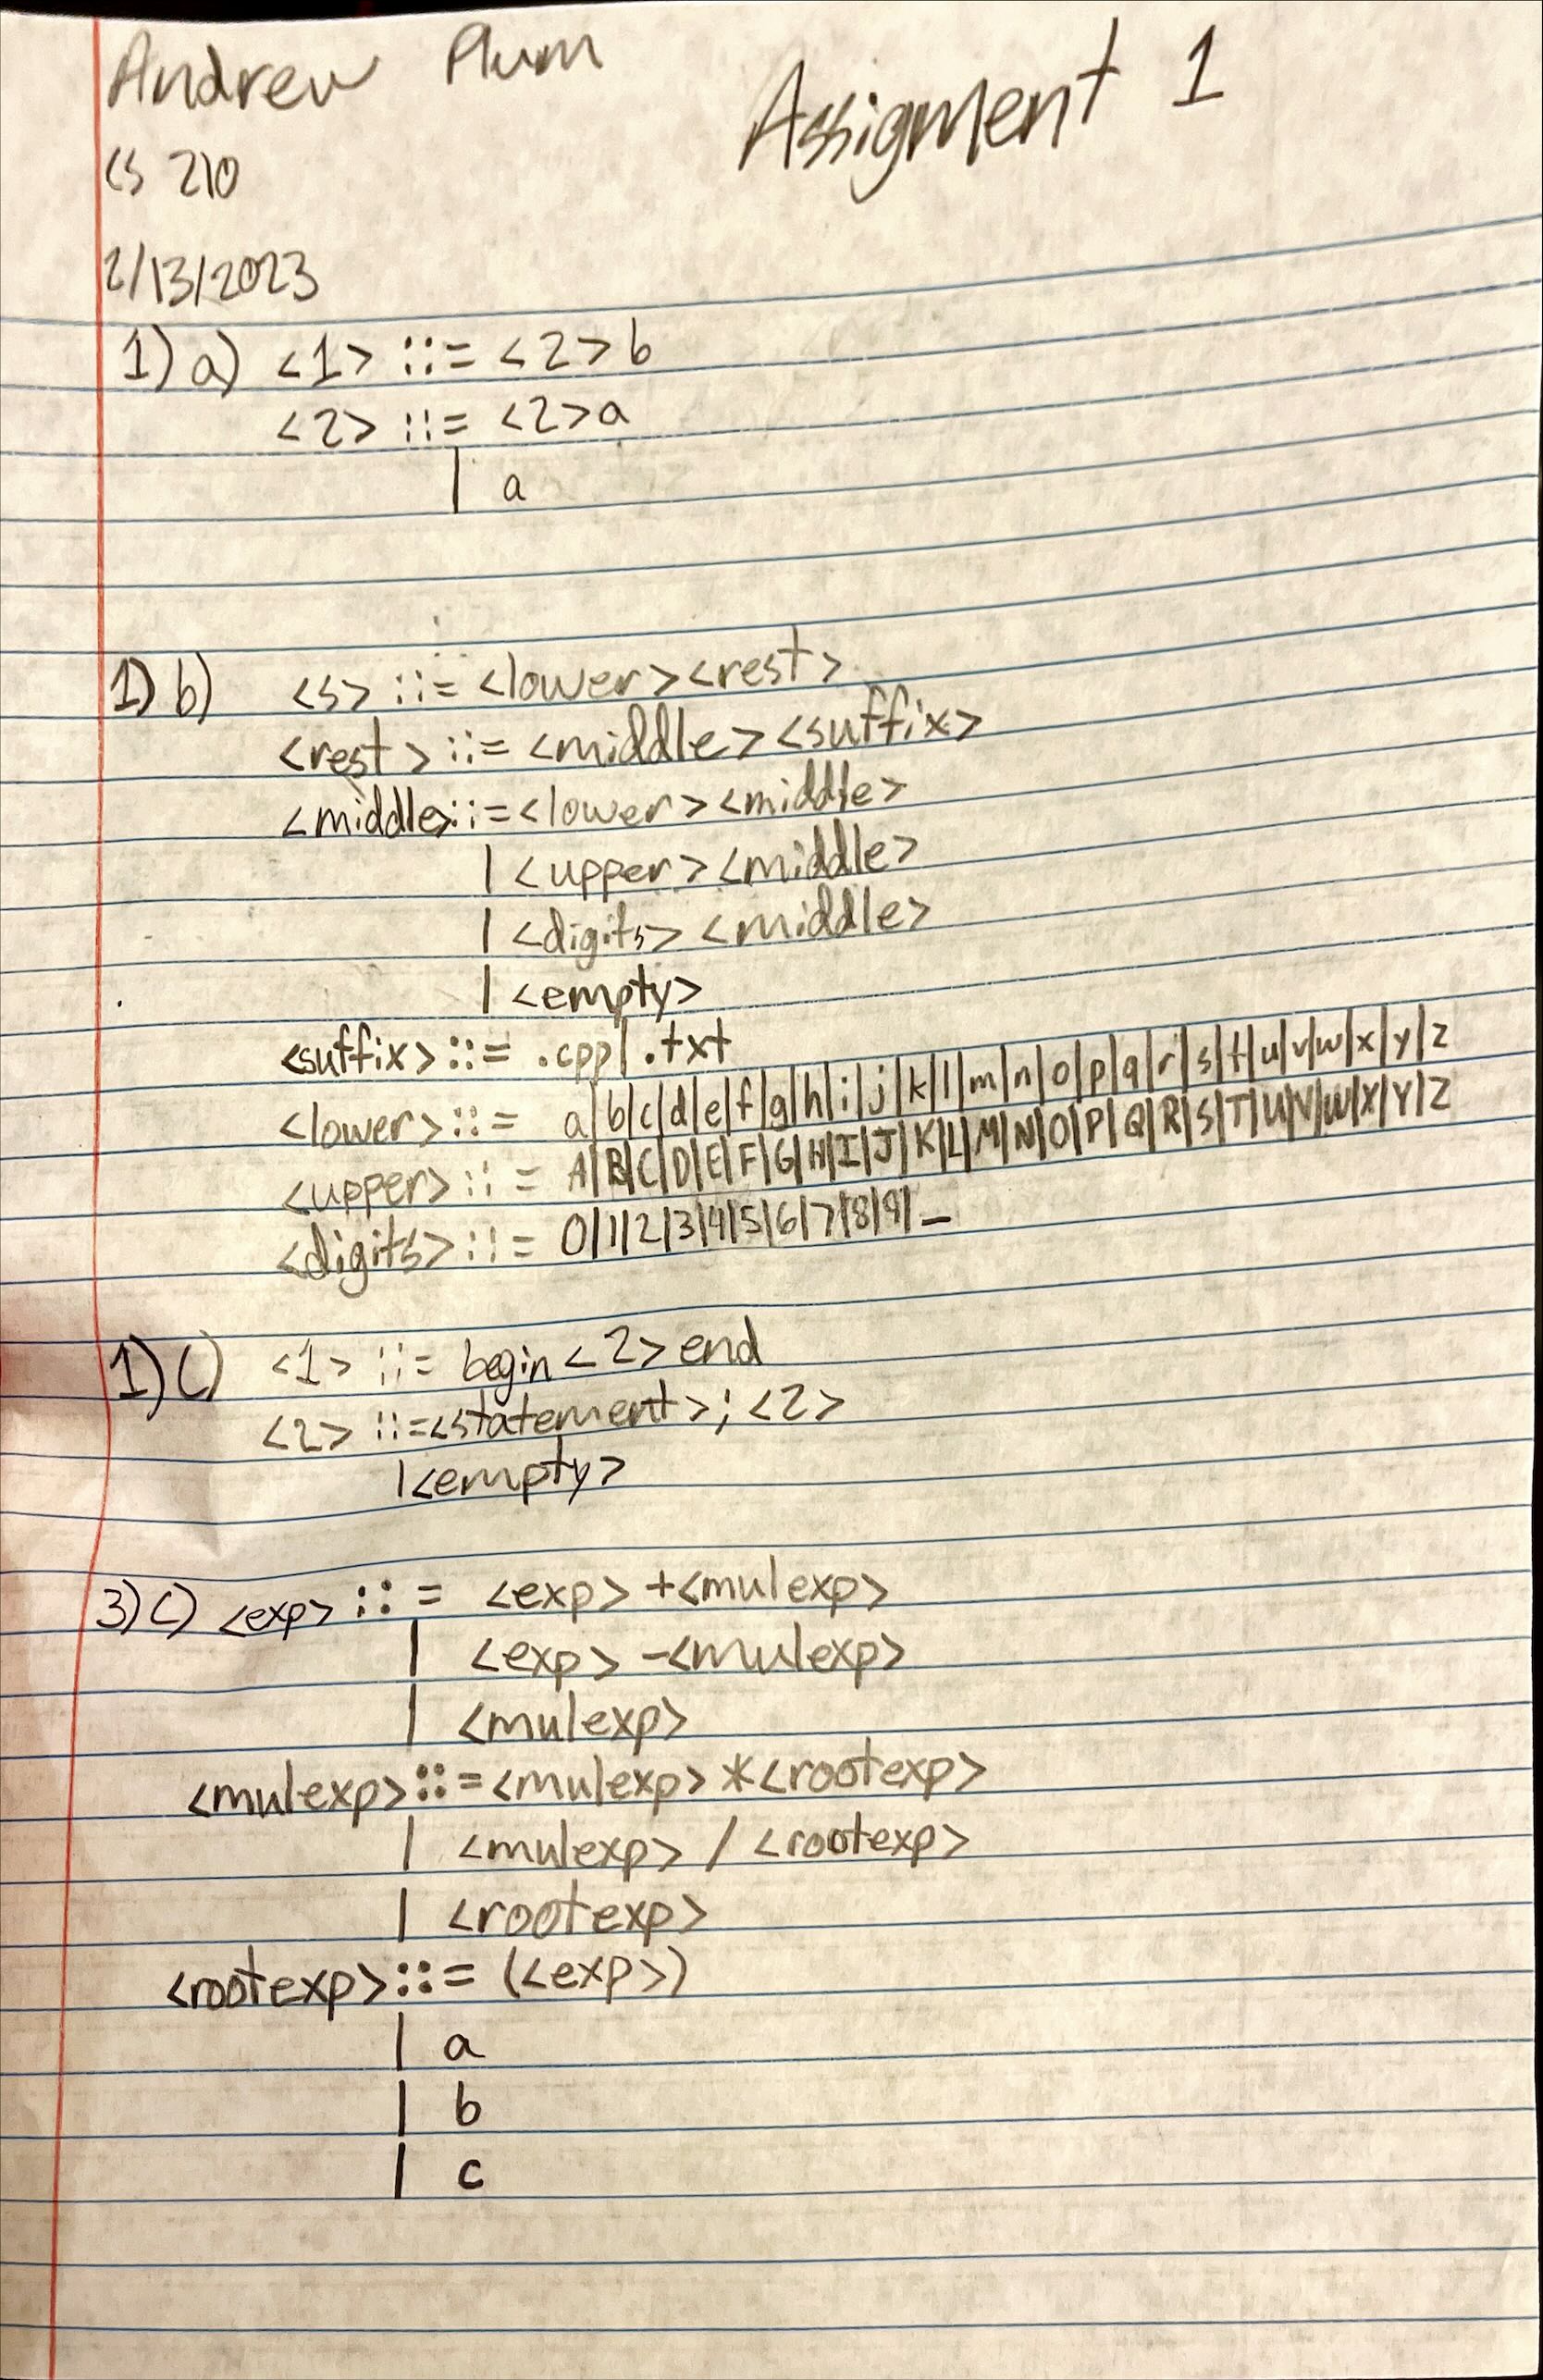 Andrew Plum
Assigment 1
CS 210
2/13/2023
1) a) <1> ::= <2> b
<2> ::= <2>a
| a
1) b) <s> ::= <lower><rest>
<rest> ::= <middle><suffix>
<middle> ::= <lower><middle>
| <upper><middle>
| <digits><middle>
| <empty>
<suffix> ::= .cpp| .txt
<lower> ::= a|b|c|d|e|f|g|h|i|j|k|l|m|n|o|p|q|r|s|t|u|v|w|x|y|z
<upper> ::= A|B|C|D|E|F|G|H|I|J|K|L|M|N|O|P|Q|R|S|T|U|V|W|X|Y|Z
<digits> ::= 0|1|2|3|4|5|6|7|8|9|_
1) C) <1> ::= begin <2> end
<2> ::= <statement>; <2>
|<empty>
3) C) <exp> ::= <exp> +<mulexp>
| <exp> -<mulexp>
| <mulexp>
<mulexp> ::= <mulexp> *<rootexp>
| <mulexp> / <rootexp>
| <rootexp>
<rootexp> ::= (<exp>)
| a
| b
| c